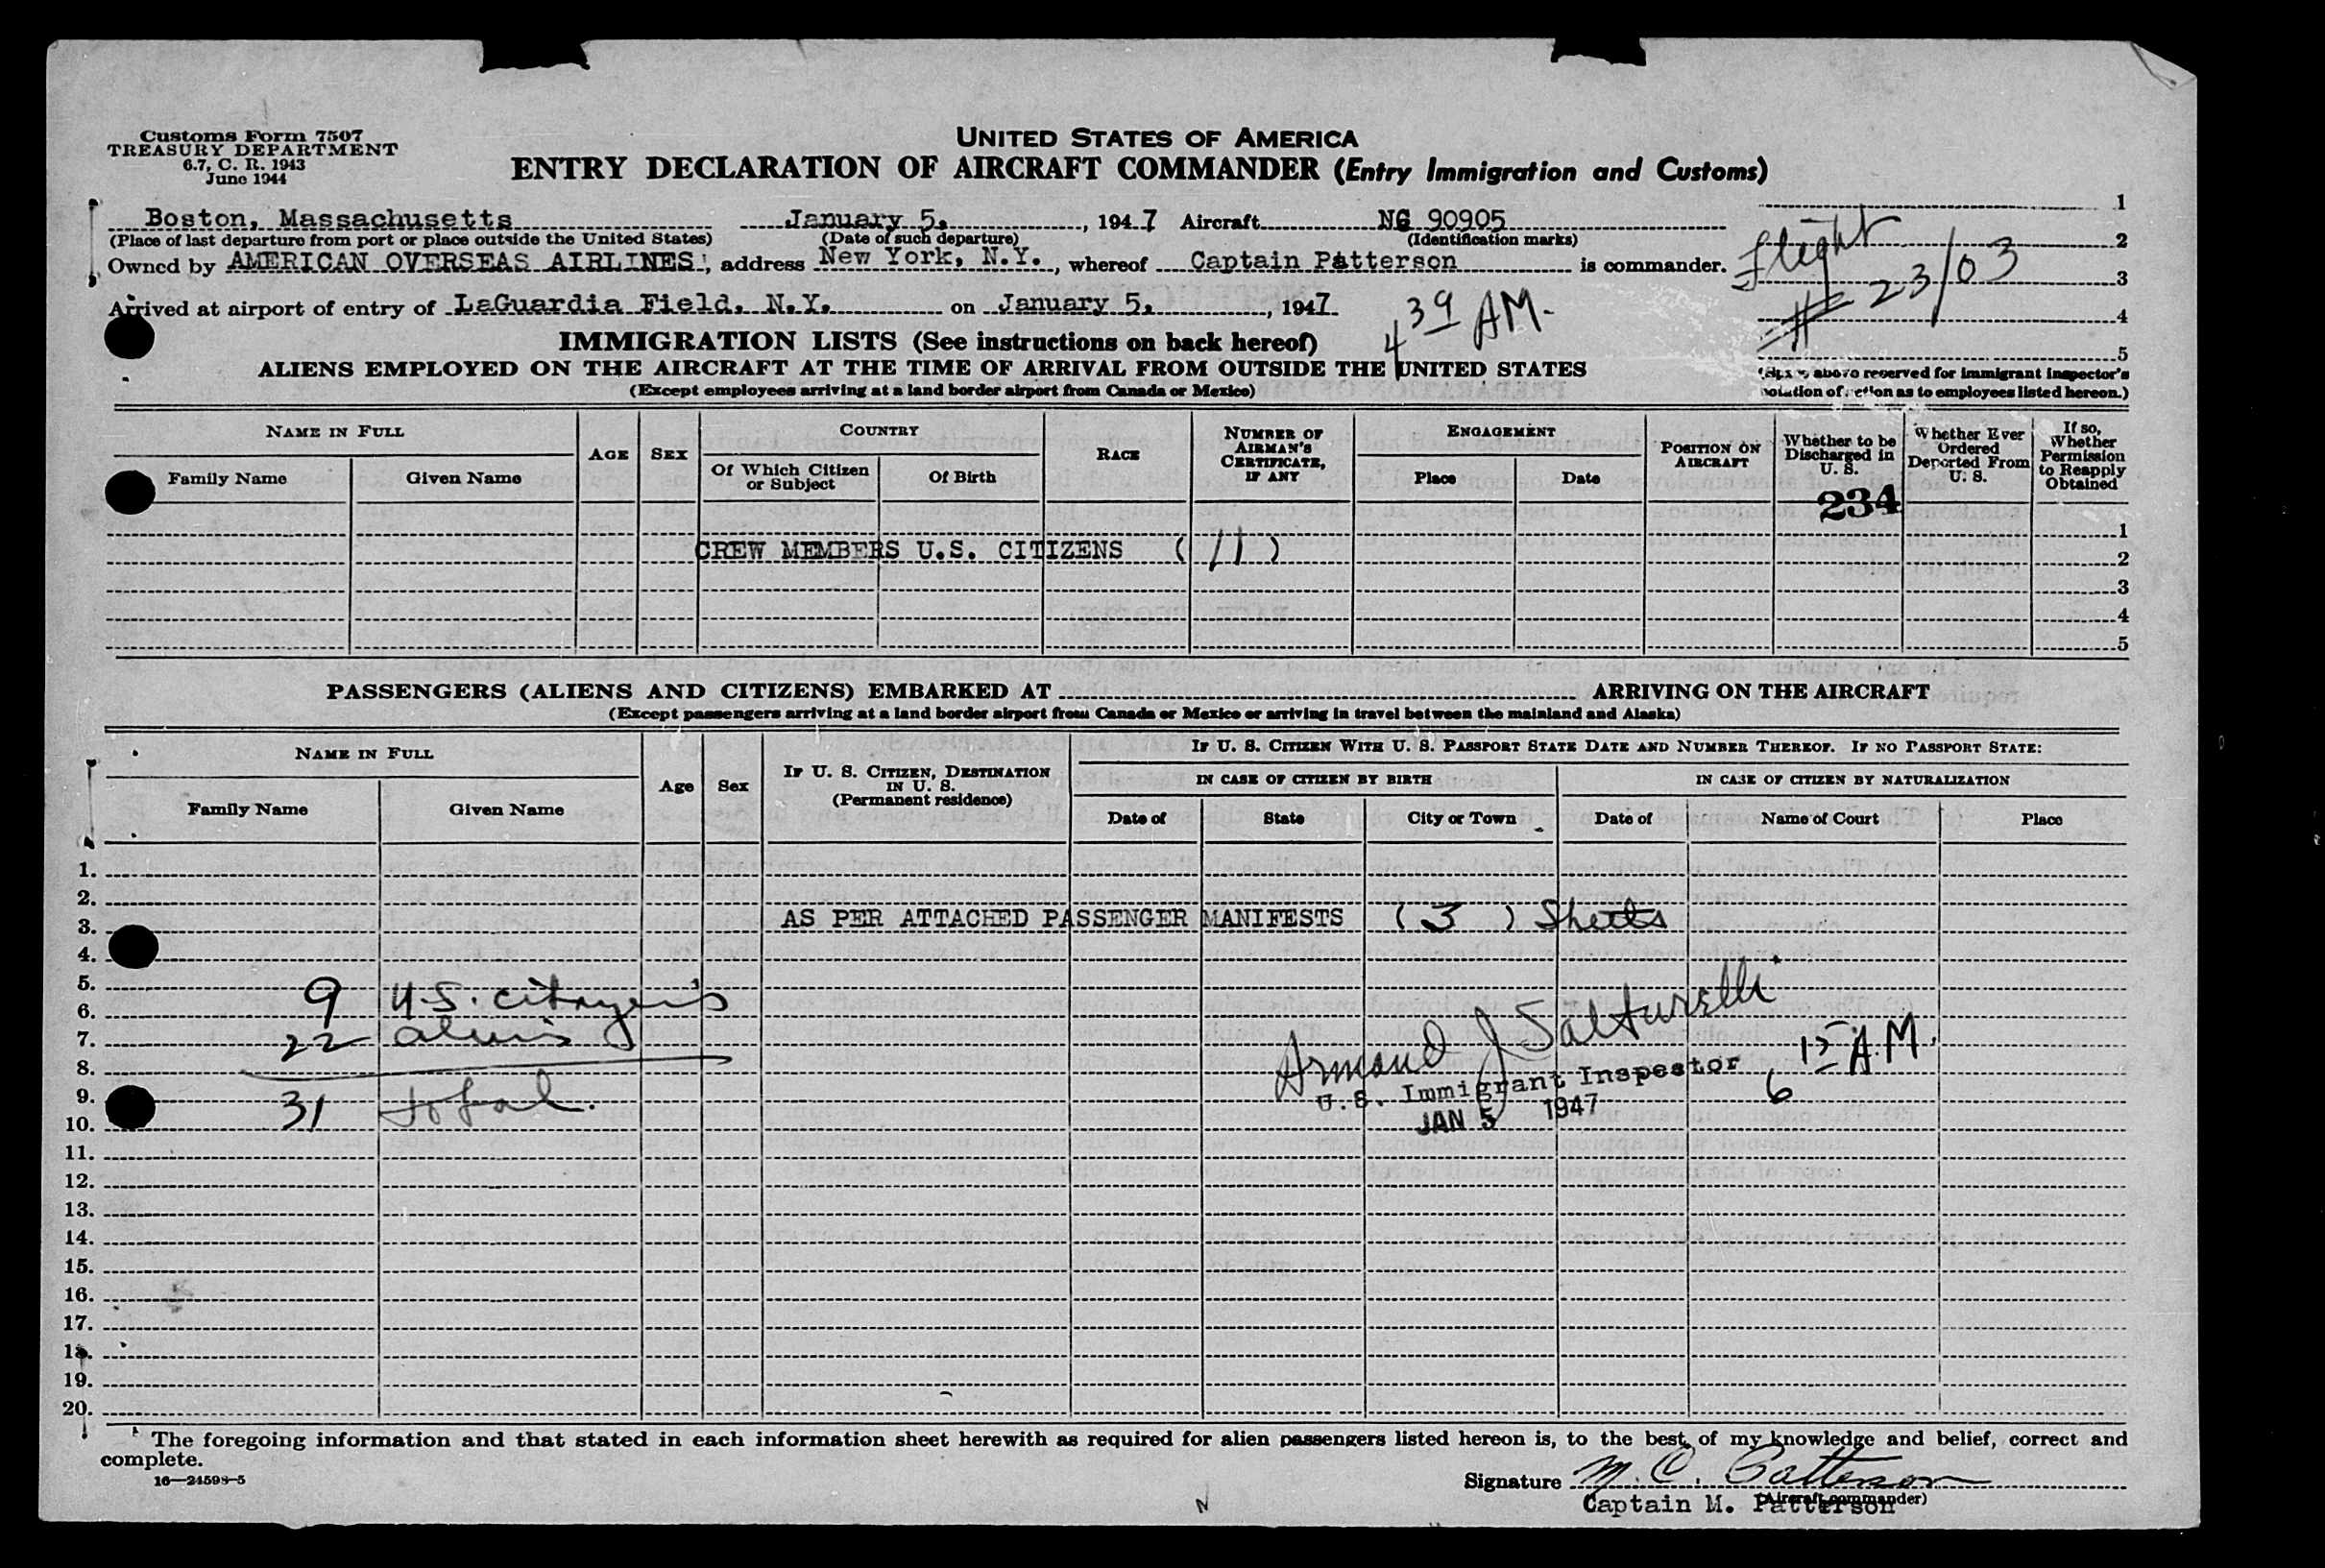 Customs Form 7507
TREASURY DEPARTMENT
6.7, C. R. 1943
June 1944
UNITED STATES OF AMERICA
ENTRY DECLARATION OF AIRCRAFT COMMANDER (Entry Immigration and Customs)
Boston, Massachusetts January 5, , 1947 Aircraft NC 90905
(Place of last departure from port or place outside the United States) (Date of such departure) (Identification marks)
Owned by AMERICAN OVERSEAS AIRLINES, address New York, N.Y. , whereof Captain Patterson is commander.
Arrived at airport of entry of LaGuardia Field, N.Y. on January 5, , 1947
4 39 AM.
1
2
3
4
5
Flight
# 23/03
(Space above reserved for immigrant inspector's
notation of action as to employees listed hereon.)
IMMIGRATION LISTS (See instructions on back hereof)
ALIENS EMPLOYED ON THE AIRCRAFT AT THE TIME OF ARRIVAL FROM OUTSIDE THE UNITED STATES
(Except employees arriving at a land border airport from Canada or Mexico)
NAME IN FULL
Family Name
Given Name
AGE
SEX
COUNTRY
Of Which Citizen
or Subject
Of Birth
RACE
NUMBER OF
AIRMAN'S
CERTIFICATE,
IF ANY
ENGAGEMENT
Place
Date
POSITION ON
AIRCRAFT
Whether to be
Discharged in
U. S.
Whether Ever
Ordered
Deported From
U. S.
If so,
Whether
Permission
to Reapply
Obtained
234
1
CREW MEMBERS U.S. CITIZENS ( 11 )
2
3
4
5
PASSENGERS (ALIENS AND CITIZENS) EMBARKED AT ARRIVING ON THE AIRCRAFT
(Except passengers arriving at a land border airport from Canada or Mexico or arriving in travel between the mainland and Alaska)
NAME IN FULL
Family Name
Given Name
Age
Sex
IF U. S. CITIZEN, DESTINATION
IN U. S.
(Permanent residence)
IF U. S. CITIZEN WITH U. S. PASSPORT STATE DATE AND NUMBER THEREOF. IF NO PASSPORT STATE:
IN CASE OF CITIZEN BY BIRTH
Date of
State
City or Town
IN CASE OF CITIZEN BY NATURALIZATION
Date of
Name of Court
Place
1.
2.
3. AS PER ATTACHED PASSENGER MANIFESTS ( 3 ) Sheets
4.
5.
9 U.S. citizens
6.
7. 22 aliens
8.
9.
31 total.
10.
Armand J Salturelli
U.S. Immigrant Inspector
JAN 5 1947
6 15 A.M.
11.
12.
13.
14.
15.
16.
17.
18.
19.
20.
The foregoing information and that stated in each information sheet herewith as required for alien passengers listed hereon is, to the best of my knowledge and belief, correct and
complete.
16—24598-5
Signature M. C. Patterson
(Aircraft commander)
Captain M. Patterson